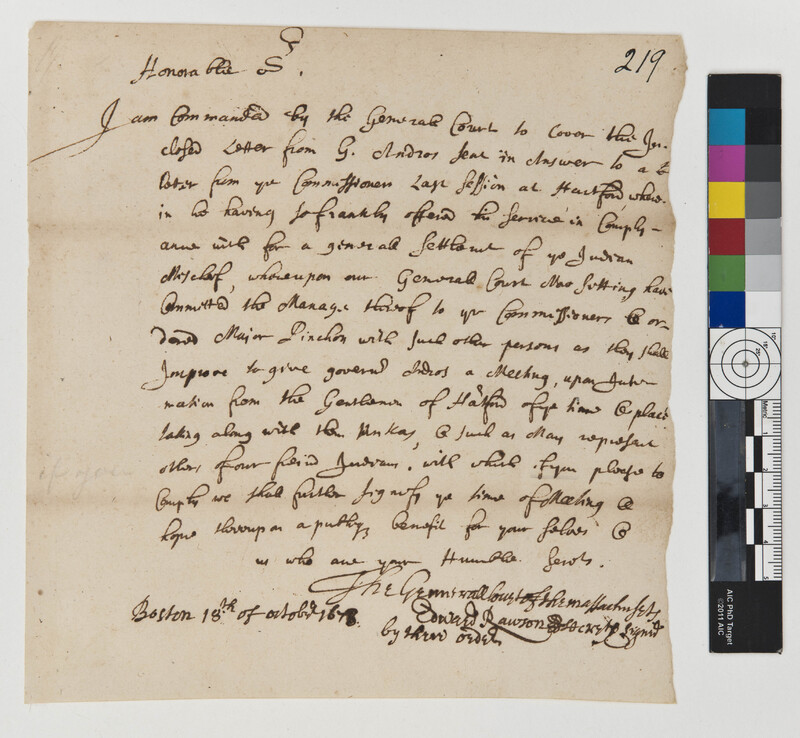 219
Honorable Sr.
I am Commanded by the Generall Court to Cover this In-
closed Letter from G. Andros sent in Answer to a
letter from ye Commissioners Last Session at Hartford, where-
in he having so frankly offered his service in Comply-
ance with for a generall Settlmt of ye Indian
Mischeif, whereupon our Generall Court Now Sitting have
Comitted the Manage thereof to ye Commissioners & or-
dered Major Pinchon with such other persons as they shall
Improve to give governr Andros a Meeting, upon Inter
mation from the Gentlemen of Hartford of ye time & place
taking along with them Unkas, & such as May represent
others of our freind Indians. with which if you please to
Comply we shall further signify ye time of Meeting &
hope thereupon a publiq benefit for your selves &
us who are your Humble Servts.
The Generall Court of the Massachusets
Boston 18th of octobr 1678 Edward Rawson Secrety Signd
by there order